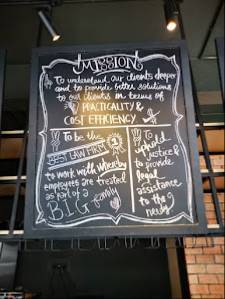 MISSION
To understand our clients deeper
and to provide better solutions
to our clients in terms of
PRACTICALITY &
COST EFFICIENCY
To be the
BEST LAW FIRM
to work with whereby
employees are treated
as part of a
BIG family
To
uphold
justice &
to provide
legal
assistance
to the
needy